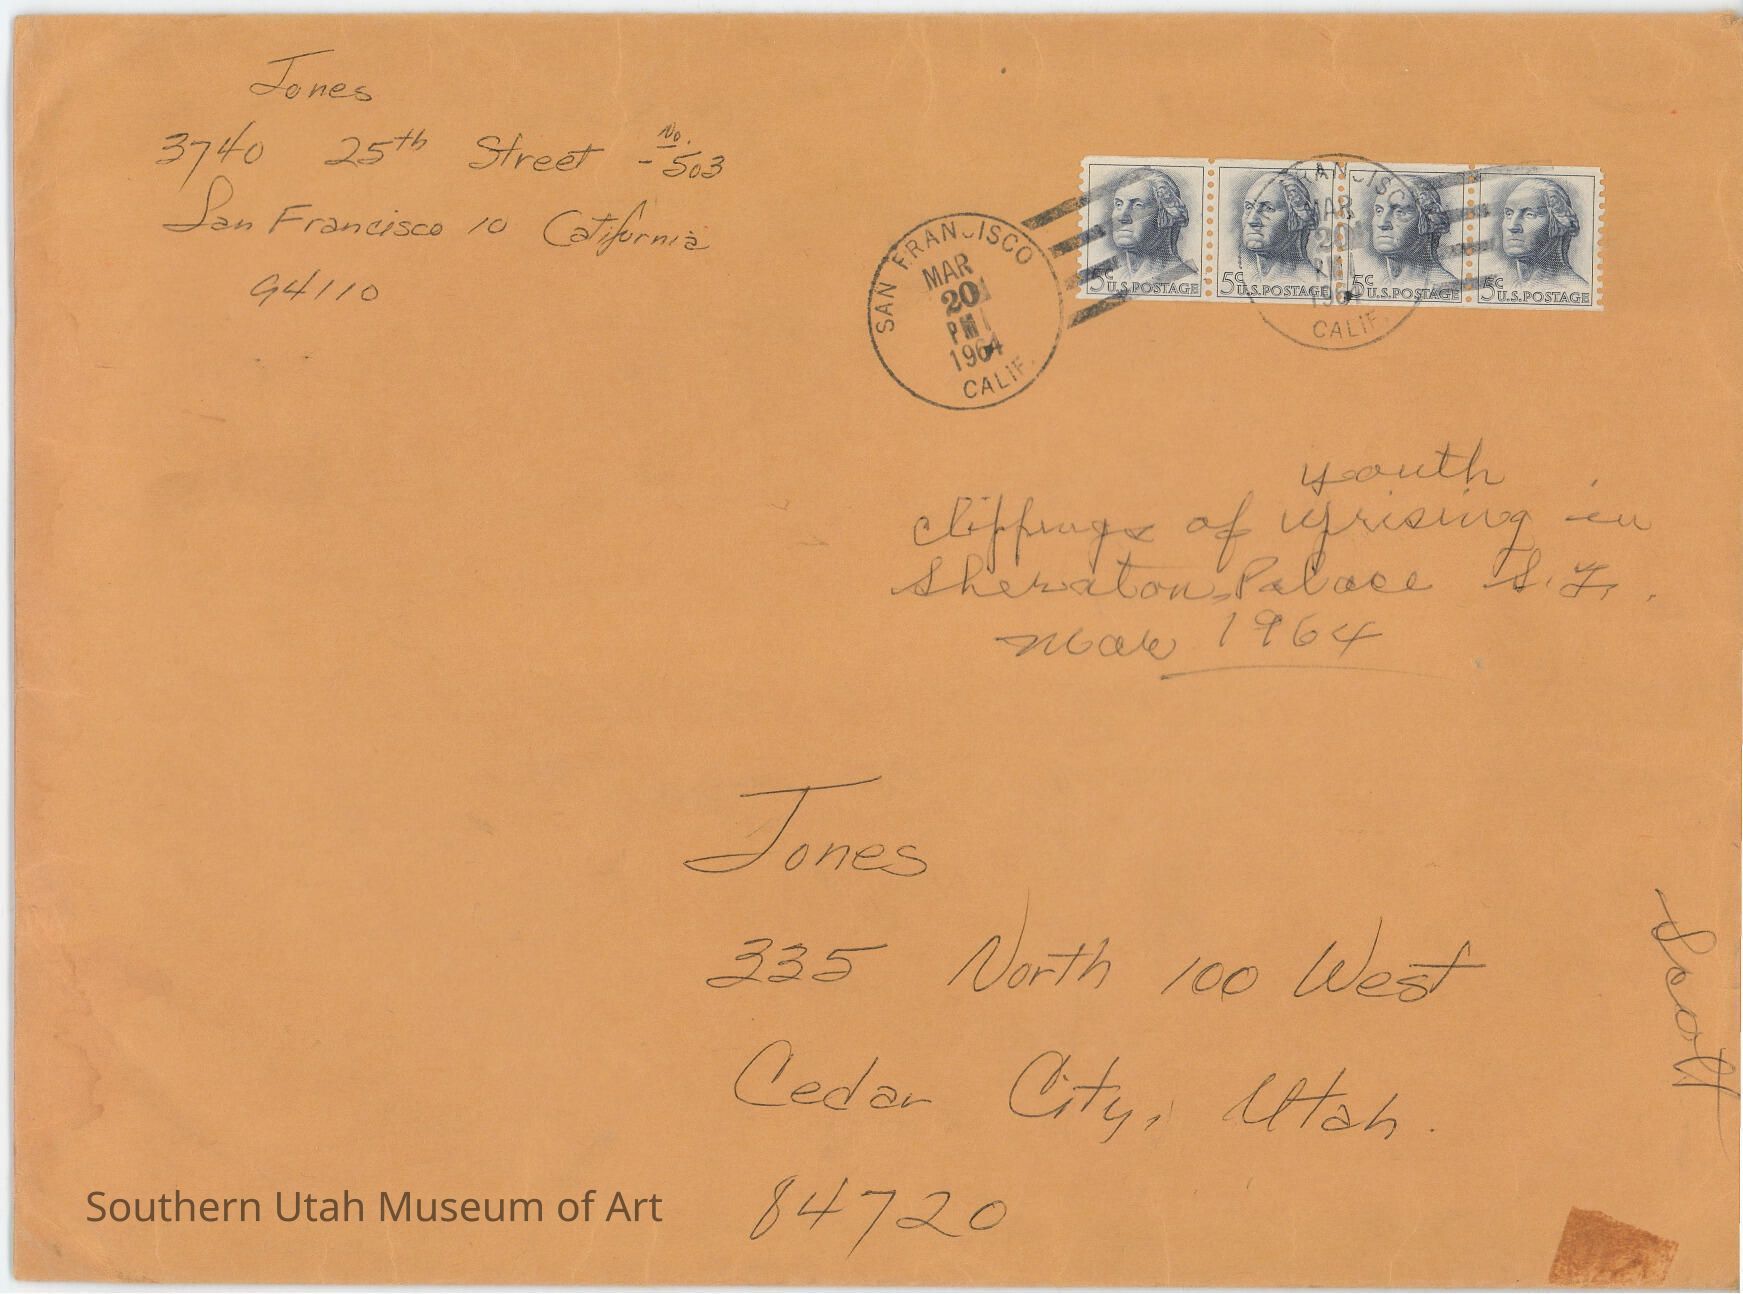 Jones
3740 25th Street - No. 503
San Francisco 10 California
94110
SAN FRANCISCO
MAR
20
PM
1964
CALIF.
5c U.S. POSTAGE
5c U.S. POSTAGE
5c U.S. POSTAGE
5c U.S. POSTAGE
SAN FRANCISCO
MAR
20
PM
1964
CALIF.
youth
clippings of uprising in
Sheraton, Palace S.F.
Mar 1964
Jones
335 North 100 West
Cedar City, Utah.
84720
Scott
Southern Utah Museum of Art